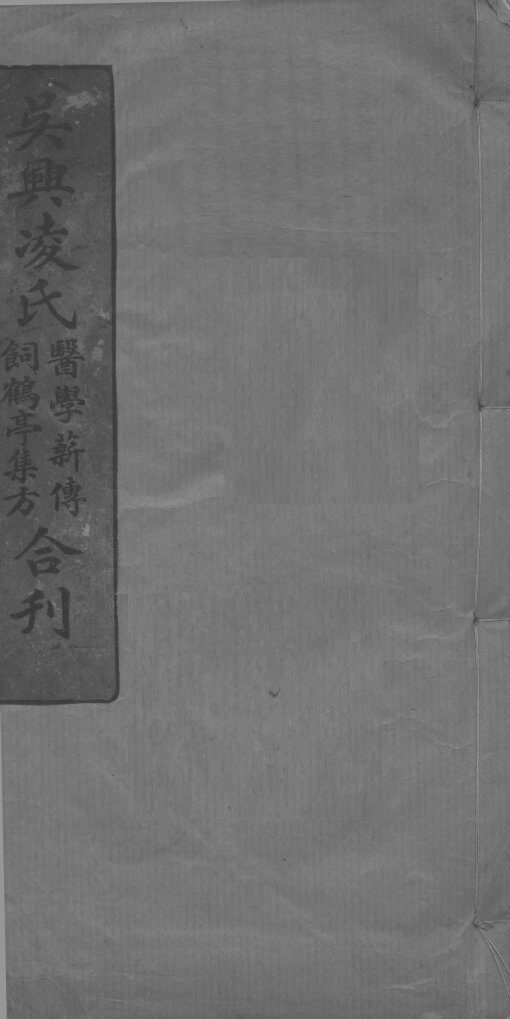 吳興淩氏
醫學薪傳
飼鶴亭集方
合刊